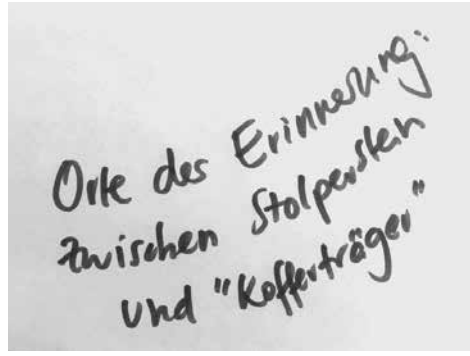 Orte des Erinnerung:
zwischen Stolperstein
und "Kofferträger"